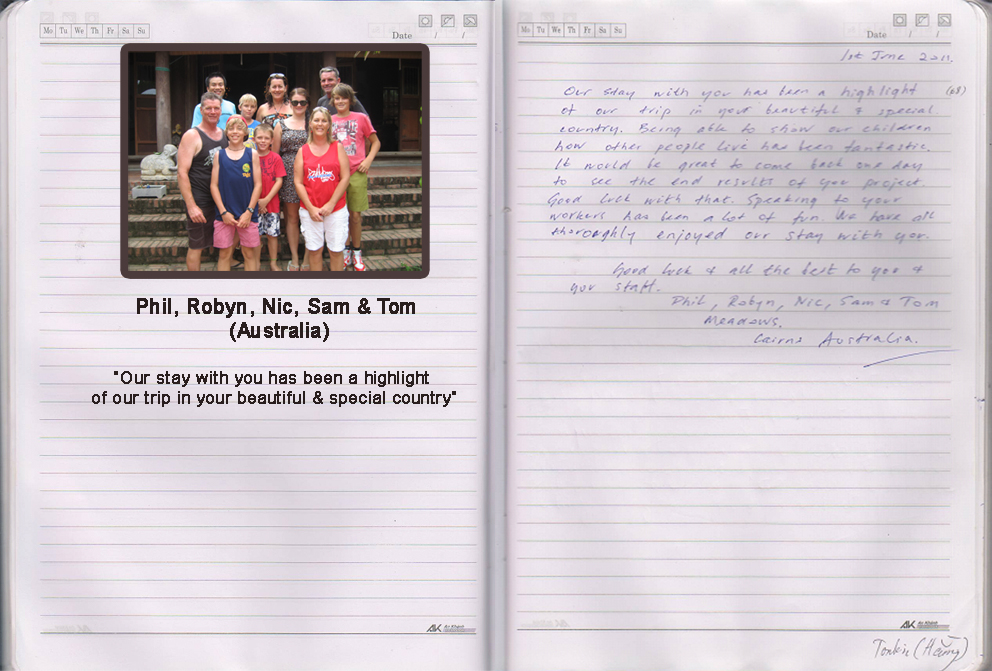 Mo Tu We Th Fr Sa Su
Date / /
Phil, Robyn, Nic, Sam & Tom
(Australia)
"Our stay with you has been a highlight
of our trip in your beautiful & special country"
AK An Khánh
Mo Tu We Th Fr Sa Su
Date / /
1st June 2011.
(68)
Our stay with you has been a highlight
of our trip in your beautiful & special
country. Being able to show our children
how other people live has been fantastic.
It would be great to come back one day
to see the end results of your project.
Good luck with that. Speaking to your
workers has been a lot of fun. We have all
thoroughly enjoyed our stay with you.
Good luck & all the best to you &
your staff.
Phil, Robyn, Nic, Sam & Tom
Meadows.
Cairns Australia.
AK An Khánh
Tonkin